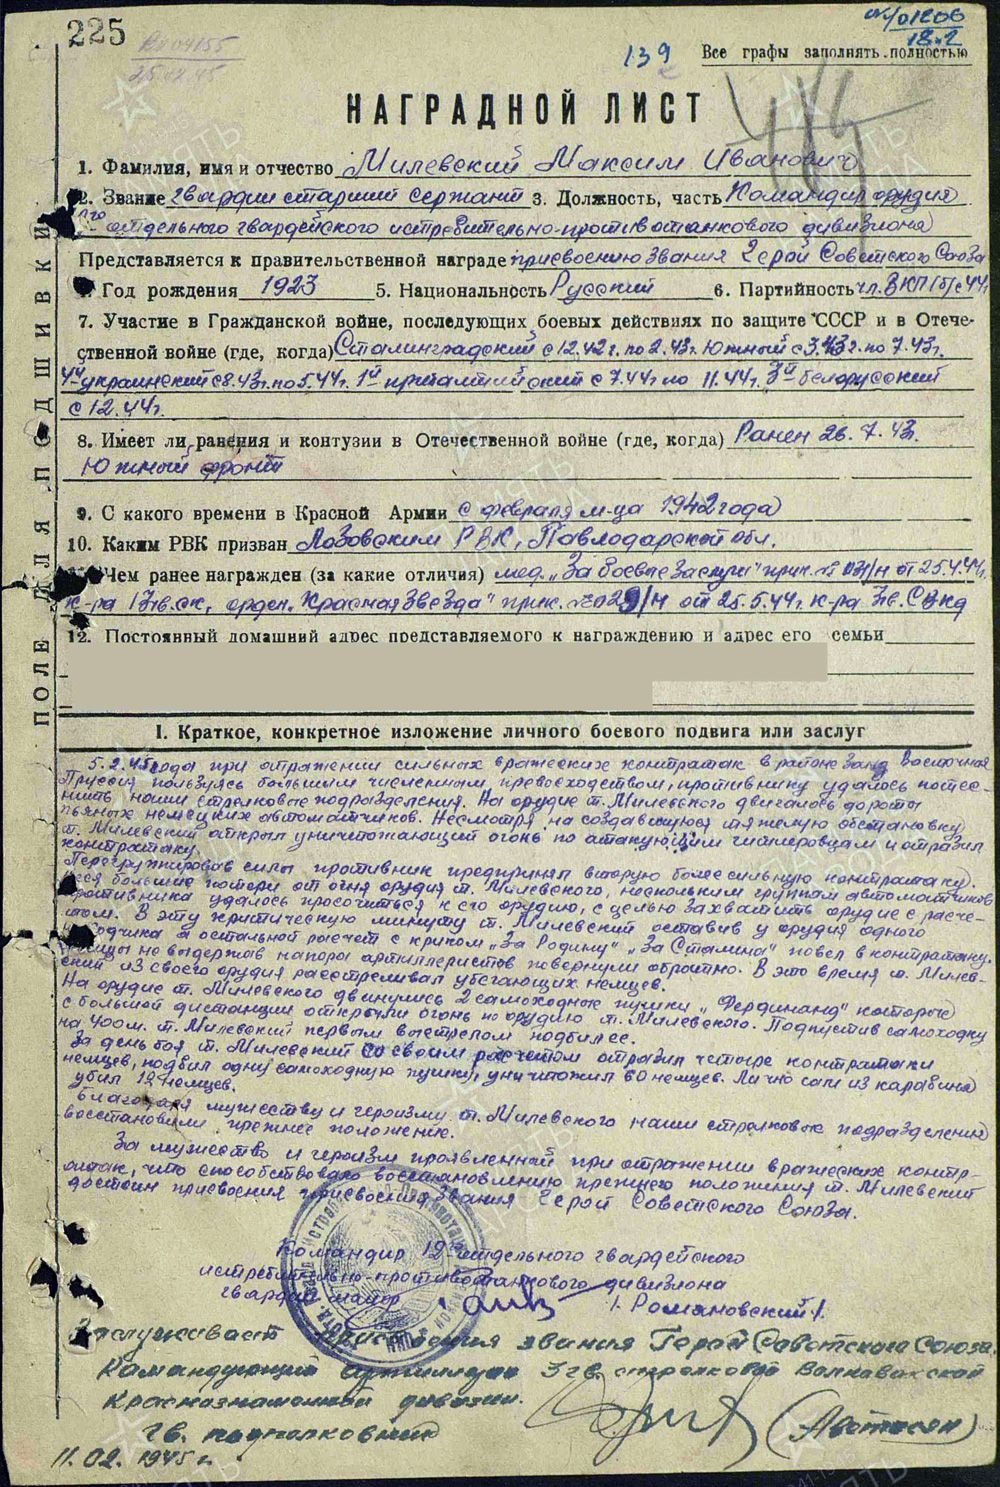 225
139
18.2
Все графы заполнять полностью
НАГРАДНОЙ ЛИСТ
1. Фамилия, имя и отчество Милевский Максим Иванович
2. Звание гвардии старший сержант 3. Должность, часть Командир орудия
отдельного гвардейского истребительно-противотанкового дивизиона
Представляется к правительственной награде присвоению звания Герой Советского Союза
Год рождения 1923 5. Национальность Русский 6. Партийность чл. ВКП(б) с 44г
7. Участие в Гражданской войне, последующих боевых действиях по защите СССР и в Отече-
ственной войне (где, когда) Сталинградский с 12.42г. по 2.43г. Южный с 3.43г. по 7.43г.
4й украинский с 8.43г. по 5.44г. 1й прибалтийский с 7.44г по 11.44г. 3й белорусский
с 12.44г.
8. Имеет ли ранения и контузии в Отечественной войне (где, когда) Ранен 26.7.43г.
Южный фронт
9. С какого времени в Красной Армии с февраля м-ца 1942 года
10. Каким РВК призван Лозовским РВК, Павлодарской обл.
Чем ранее награжден (за какие отличия) мед. „За боевые заслуги" прик. № 031/н от 25.4.44г.
к-ра 13гв.ск, орден „Красная Звезда" прик. № 029/н от 25.5.44г. к-ра 3гв.СВкд
12. Постоянный домашний адрес представляемого к награждению и адрес его семьи
ПОЛЕ ДЛЯ ПОДШИВКИ
I. Краткое, конкретное изложение личного боевого подвига или заслуг
5.2.45 года при отражении сильных вражеских контратак в районе Восточная
Пруссия пользуясь большим численным превосходством, противнику удалось потес-
нить наши стрелковые подразделения. На орудие т. Милевского двигалось до роты
пьяных немецких автоматчиков. Несмотря на создавшуюся тяжелую обстановку
т. Милевский открыл уничтожающий огонь по атакующим гитлеровцам и отразил
контратаку.
Перегруппировав силы противник предпринял вторую более сильную контратаку.
Неся большие потери от огня орудия т. Милевского, нескольким группам автоматчиков
противника удалось просочиться к его орудию, с целью захватить орудие с расче-
том. В эту критическую минуту т. Милевский оставив у орудия одного
наводчика а остальной расчет с криком „За Родину" „За Сталина" повел в контратаку.
Немцы не выдержав напора артиллеристов повернули обратно. В это время т. Милев-
ский из своего орудия расстреливал убегающих немцев.
На орудие т. Милевского двинулись 2 самоходные пушки „Фердинанд" которые
с большой дистанции открыли огонь по орудию т. Милевского. Подпустив самоходку
на 400м. т. Милевский первым выстрелом подбил ее.
За день боя т. Милевский со своим расчетом отразил четыре контратаки
немцев, подбил одну самоходную пушку, уничтожил 60 немцев. Лично сам из карабина
убил 12 немцев.
Благодаря мужеству и героизму т. Милевского наши стрелковые подразделения
восстановили прежнее положение.
За мужество и героизм проявленный при отражении вражеских контр-
атак, что способствовало восстановлению прежнего положения т. Милевский
достоин присвоения присвоения звания Герой Советского Союза.
Командир 12 отдельного гвардейского
истребительно-противотанкового дивизиона
гвардии майор /. Романовский /.
Заслуживает присвоения звания Герой Советского Союза.
Командующий артиллерии 3 гв. стрелковой Волновахской
Краснознаменной дивизии.
Гв. подполковник (Аветисян)
11.02.1945 г.